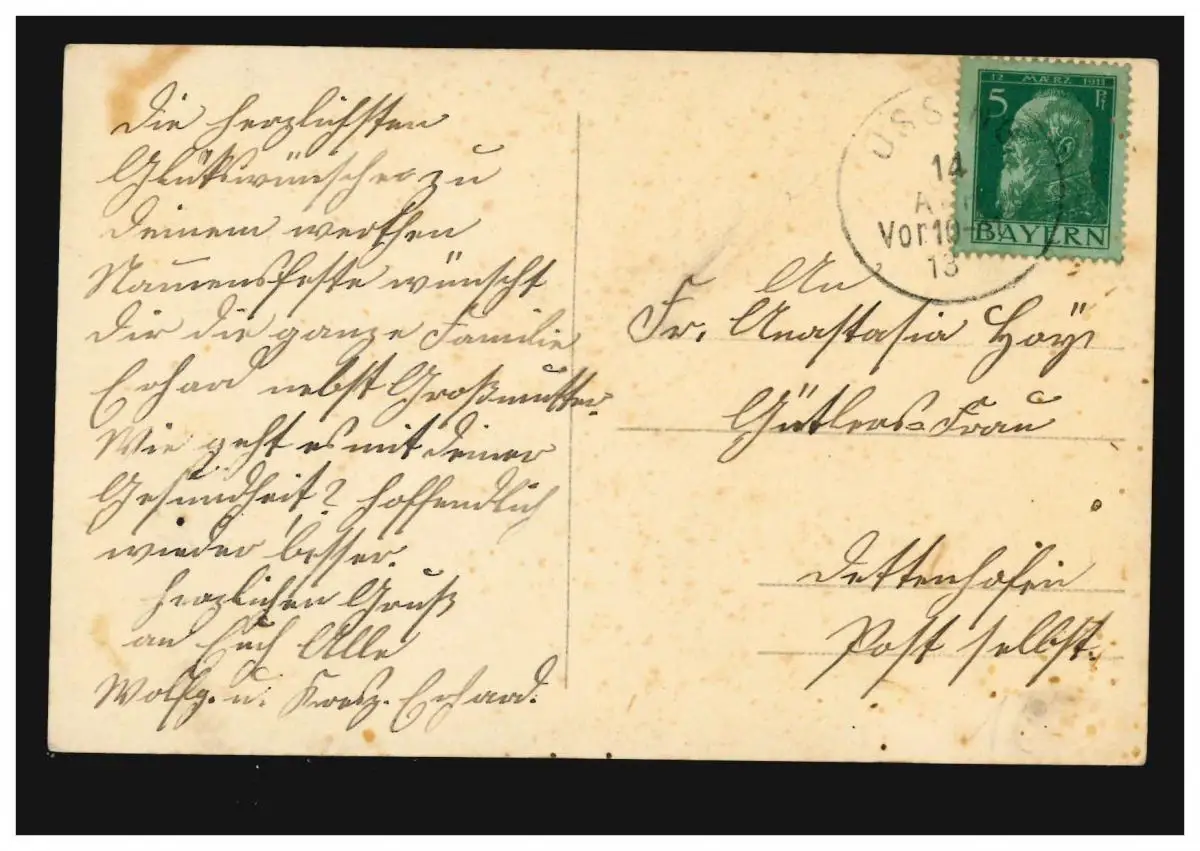 Die herzlichsten
Glükswünsche zu
deinem werthen
Namensfeste wünscht
dir die ganze Familie
Erhard nebst Großmutter.
Wie geht es mit deiner
Gesundheit? hoffendlich
wieder besser.
herzlichen Gruß
an Euch Alle
Wolfg. u. Kresz. Erhard.
12 MÆRZ 1911
5 Pf
BAYERN
14
Vor 10-
13
An
Fr. Anastasia
Gütlers-Frau
Dettenhofen
Post selbst.